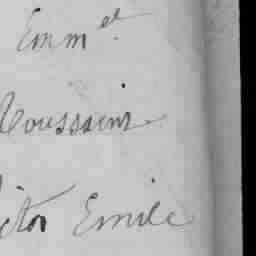 Emm.el
Toussaint
ictor Emile